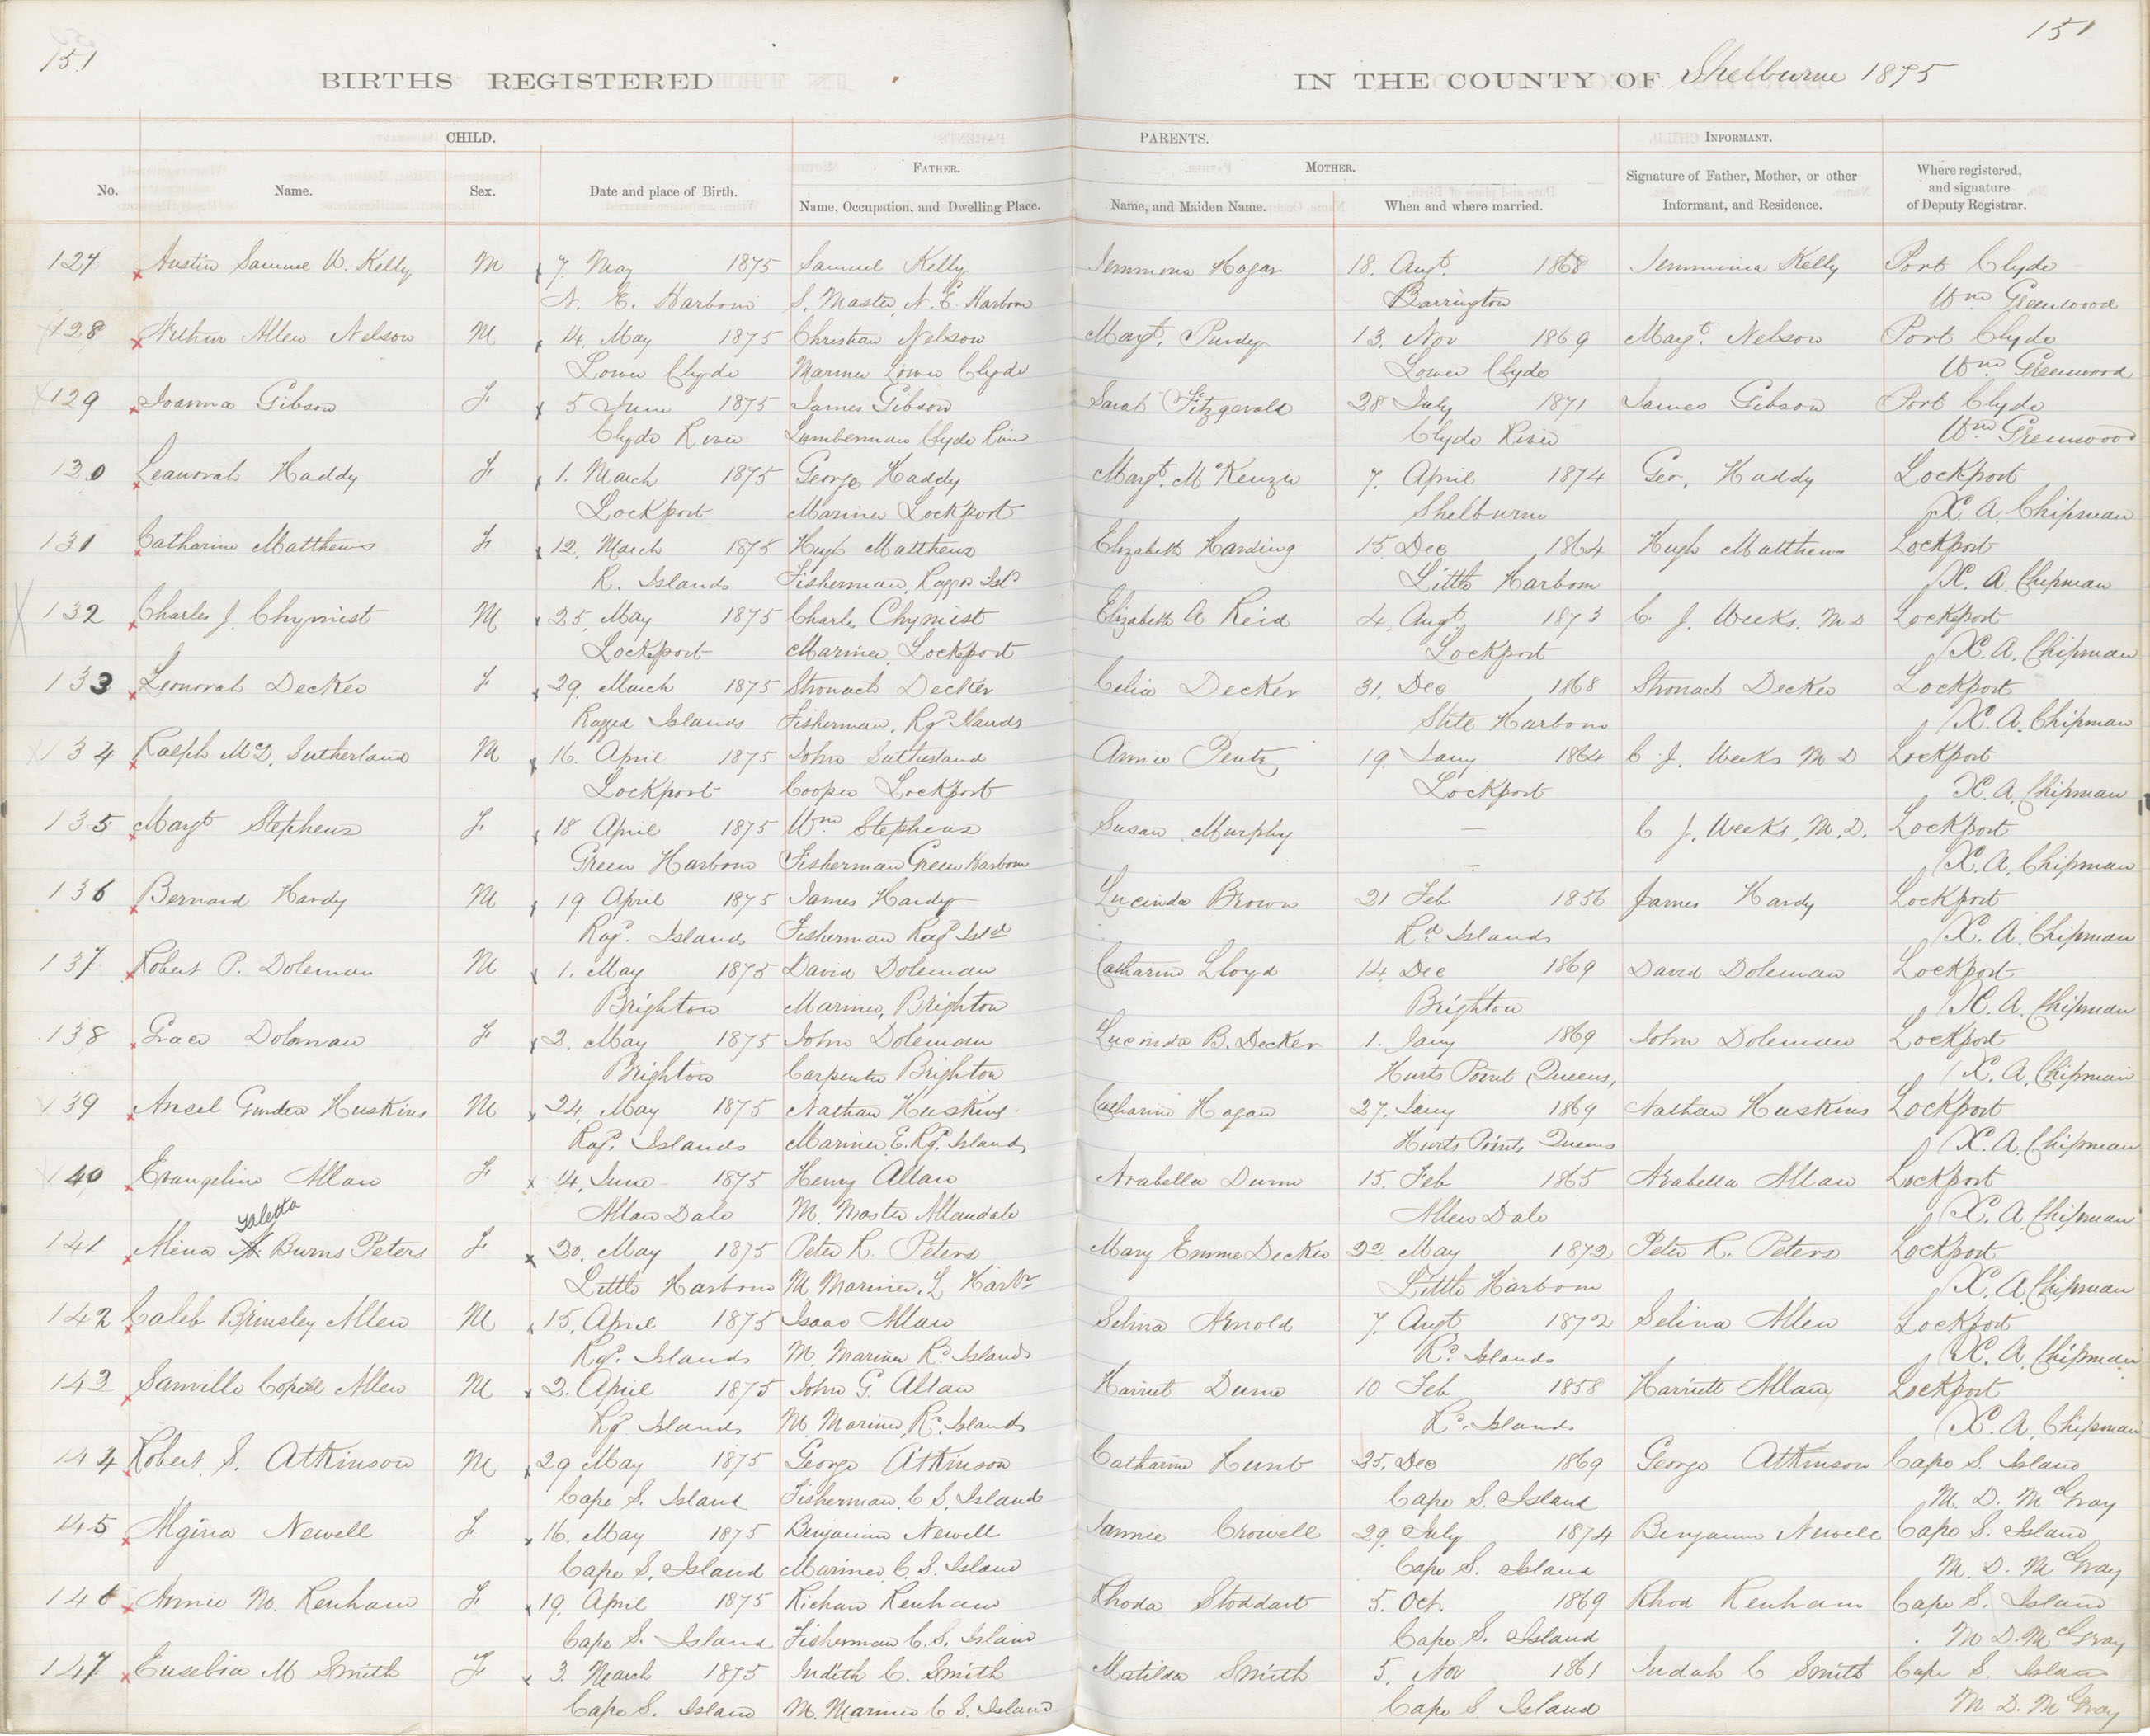 151
151
BIRTHS REGISTERED IN THE COUNTY OF Shelburne 1875
CHILD. PARENTS. INFORMANT.
FATHER. MOTHER.
No. Name. Sex. Date and place of Birth. Name, Occupation, and Dwelling Place. Name, and Maiden Name. When and where married. Signature of Father, Mother, or other Informant, and Residence. Where registered, and signature of Deputy Registrar.
127 Austin Samuel W. Kelly M 7. May 1875 Samuel Kelly Jemmima Hagar 18. Augt. 1868 Jemmima Kelly Port Clyde
N. E. Harbour S. Master, N. E. Harbour Barrington Wm Greenwood
128 Arthur Allen Nelson M 4. May 1875 Christian Nelson Margt. Purdy 13. Nov 1869 Margt. Nelson Port Clyde
Lower Clyde Mariner Lower Clyde Lower Clyde Wm Greenwood
129 Joanna Gibson F 5 June 1875 James Gibson Sarah Fitzgerald 28 July 1871 James Gibson Port Clyde
Clyde River Lumberman Clyde River Clyde River Wm Greenwood
130 Leanorah Haddy F 1. March 1875 George Haddy Margt. McKenzie 7. April 1874 Geo. Haddy Lockport
Lockport Mariner Lockport Shelburne X. A. Chipman
131 Catharine Matthews F 12. March 1875 Hugh Matthews Elizabeth Harding 15. Dec 1864 Hugh Matthews Lockport
R. Islands Fisherman, Ragged Isld Little Harbour X. A. Chipman
132 Charles J. Chymist M 25. May 1875 Charles Chymist Elizabeth A Reid 4. Augt. 1873 C. J. Weeks. M D Lockport
Lockport Mariner, Lockport Lockport X. A. Chipman
133 Leonorah Decker F 29. March 1875 Stronach Decker Celia Decker 31. Dec 1868 Stronach Decker Lockport
Ragged Islands Fisherman, Rgd. Islands Harbour X. A. Chipman
134 Ralph McD. Sutherland M 16. April 1875 John Sutherland Annie Pentz 19. Jany 1864 C. J. Weeks M D Lockport
Lockport Cooper Lockport Lockport X. A. Chipman
135 Margt Stephens F 18 April 1875 Wm Stephens Susan Murphy — C J. Weeks, M. D. Lockport
Green Harbour Fisherman Green Harbour — X. A. Chipman
136 Bernard Hardy M 19. April 1875 James Hardy Lucinda Brown 21 Feb 1856 James Hardy Lockport
Ragd. Islands Fisherman Ragd Isld Rd. Islands X. A. Chipman
137 Robert P. Doleman M 1. May 1875 David Doleman Catharine Lloyd 14. Dec 1869 David Doleman Lockport
Brighton Mariner, Brighton Brighton X. A. Chipman
138 Grace Doleman F 2. May 1875 John Doleman Lucinda B. Decker 1. Jany 1869 John Doleman Lockport
Brighton Carpenter Brighton Hunts Point Queens, X. A. Chipman
139 Ansel Huskins M 24. May 1875 Nathan Huskins Catharine Hogan 27. Jany 1869 Nathan Huskins Lockport
Ragd. Islands Mariner E. Rgd. Islands Hunts Points Queens X. A. Chipman
140 Evangeline Allan F 4. June 1875 Henry Allan Arabella Dunn 15. Feb 1865 Arabella Allan Lockport
Allan Dale M. Master Allandale Allen Dale X. A. Chipman
Taletta
141 Mina Burns Peters F 20. May 1875 Peter R. Peters Mary Emma Decker 22 May 1872 Peter R. Peters Lockport
Little Harbour M Mariner. L Harbr Little Harbour X. A. Chipman
142 Caleb Brinsley Allen M 15. April 1875 Isaac Allan Selina Arnold 7. Augt 1872 Selina Allen Lockport
Rgd. Islands M. Mariner Rd. Islands Rd. Islands X. A. Chipman
143 Sanville Allen M 2. April 1875 John G. Allan Harriet Dunn 10 Feb 1858 Harriett Allan Lockport
Rgd Islands M. Mariner, Rd. Islands Rd. Islands X. A. Chipman
144 Robert. S. Atkinson M 29 May 1875 George Atkinson Catharine Hunt 25. Dec 1869 George Atkinson Cape S. Island
Cape S. Island Fisherman, C S. Island Cape S. Island M. D. McGray
145 Algina Newell F 16. May 1875 Benjamin Newell Jannie Crowell 29. July 1874 Benjamin Newell Cape S. Island
Cape S. Island Mariner C. S. Island Cape S. Island M. D. McGray
146 Annie M. Kenham F 19. April 1875 Richan Kenham Rhoda Stoddart 5. Oct. 1869 Rhod Kenham Cape S. Island
Cape S. Island Fisherman C. S. Island Cape S. Island M D. McGray
147 Eusebia M Smith F 3. March 1875 Judith C. Smith Matilda Smith 5. Nov 1861 Judah C Smith Cape S. Island
Cape S. Island M. Mariner C S. Island Cape S. Island M D. McGray